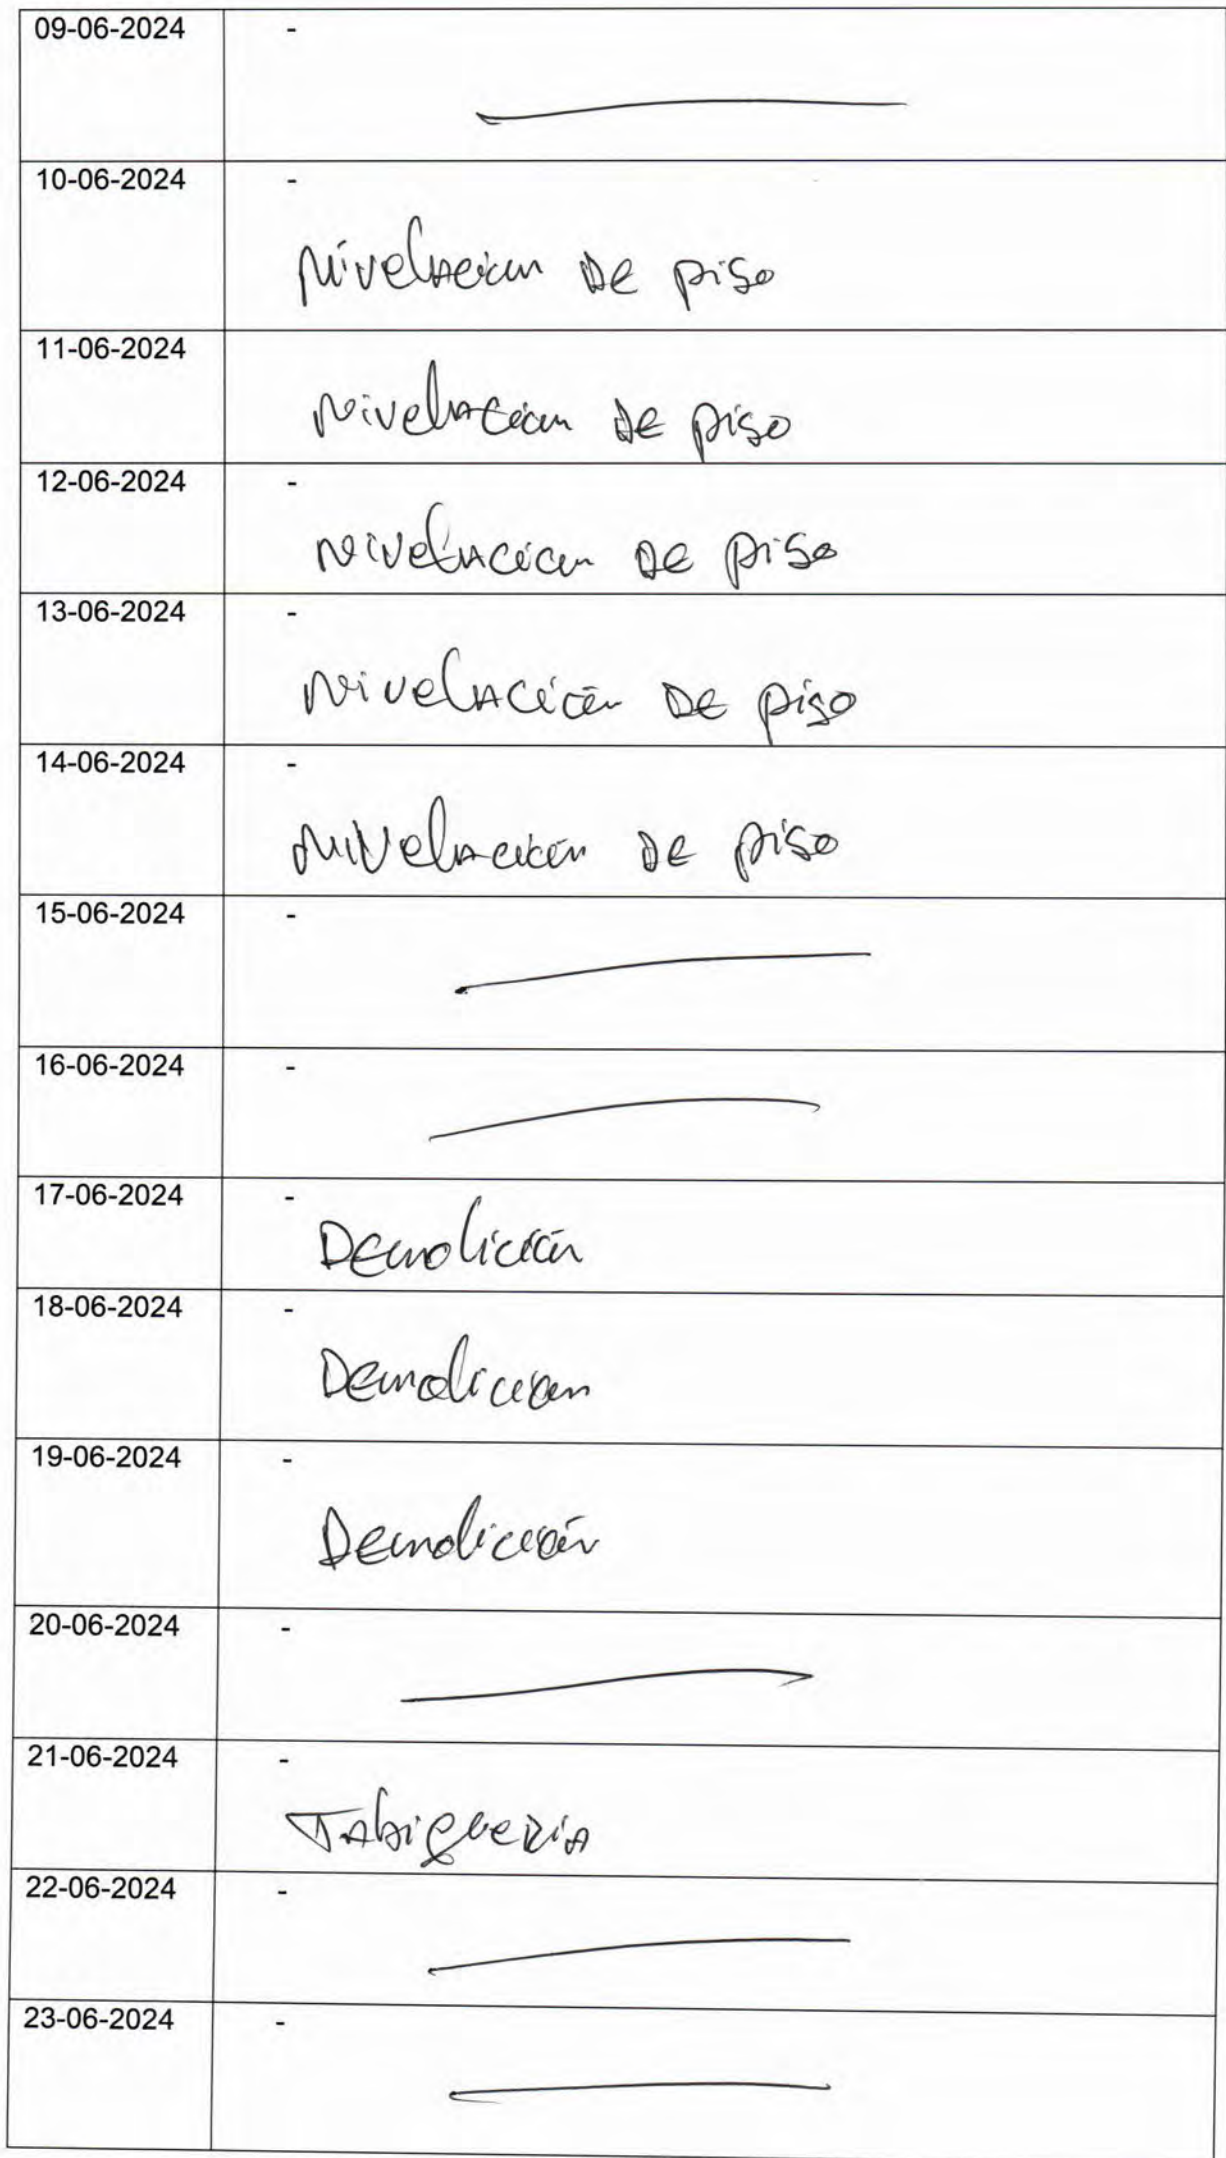 09-06-2024 -
10-06-2024 -
Nivelación De piso
11-06-2024
Nivelación De piso
12-06-2024 -
Nivelación De piso
13-06-2024 -
Nivelación De piso
14-06-2024 -
Nivelación De piso
15-06-2024 -
16-06-2024 -
17-06-2024 -
Demolición
18-06-2024 -
Demolicion
19-06-2024 -
Demolición
20-06-2024 -
21-06-2024 -
Tabiqueria
22-06-2024 -
23-06-2024 -